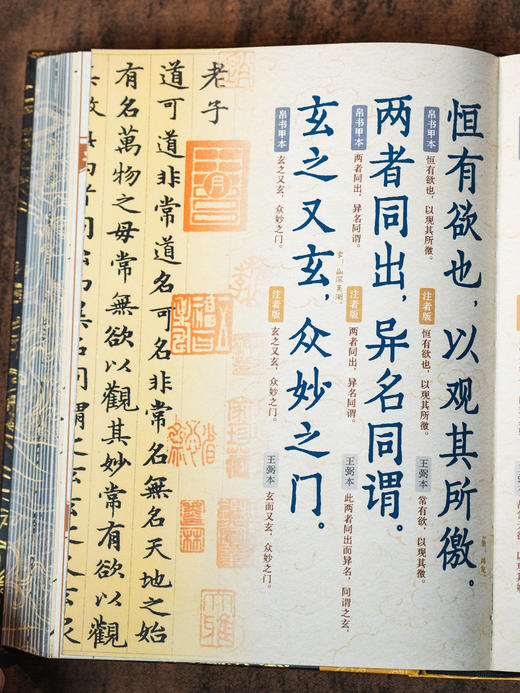 恒有欲也，以观其所徼。
帛书甲本
恒有欲也，以观其所徼。
注者版
恒有欲也，以观其所徼。
王弼本
常有欲，以观其徼。
两者同出，异名同谓。
帛书甲本
两者同出，异名同谓。
注者版
两者同出，异名同谓。
王弼本
此两者同出而异名，同谓之玄，
玄之又玄，众妙之门。
玄：幽深莫测。
帛书甲本
玄之又玄，众妙之门。
注者版
玄之又玄，众妙之门。
王弼本
玄而又玄，众妙之门。
老子
道可道非常道名可名非常名無名天地之始
有名萬物之母常無欲以觀其妙常有欲以觀